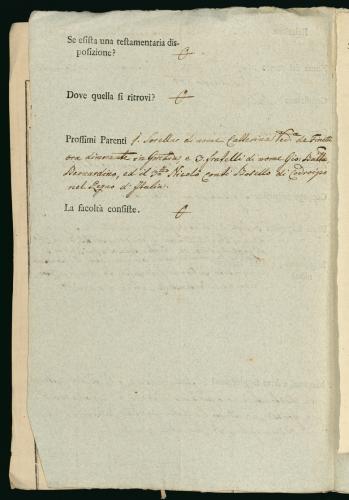 Se esista una testamentaria dis-
posizione?
Dove quella si ritrovi?
Prossimi Parenti 1. Sorella di nome Catterina Ved.a de Finetti
ora dimorante in Gorizia, e 3. fratelli di nome Gio: Batta
Bernardino, ed il 3.zo Nicolò conti Rotello di Codroipo
nel Regno d'Italia.
La facoltà consiste.